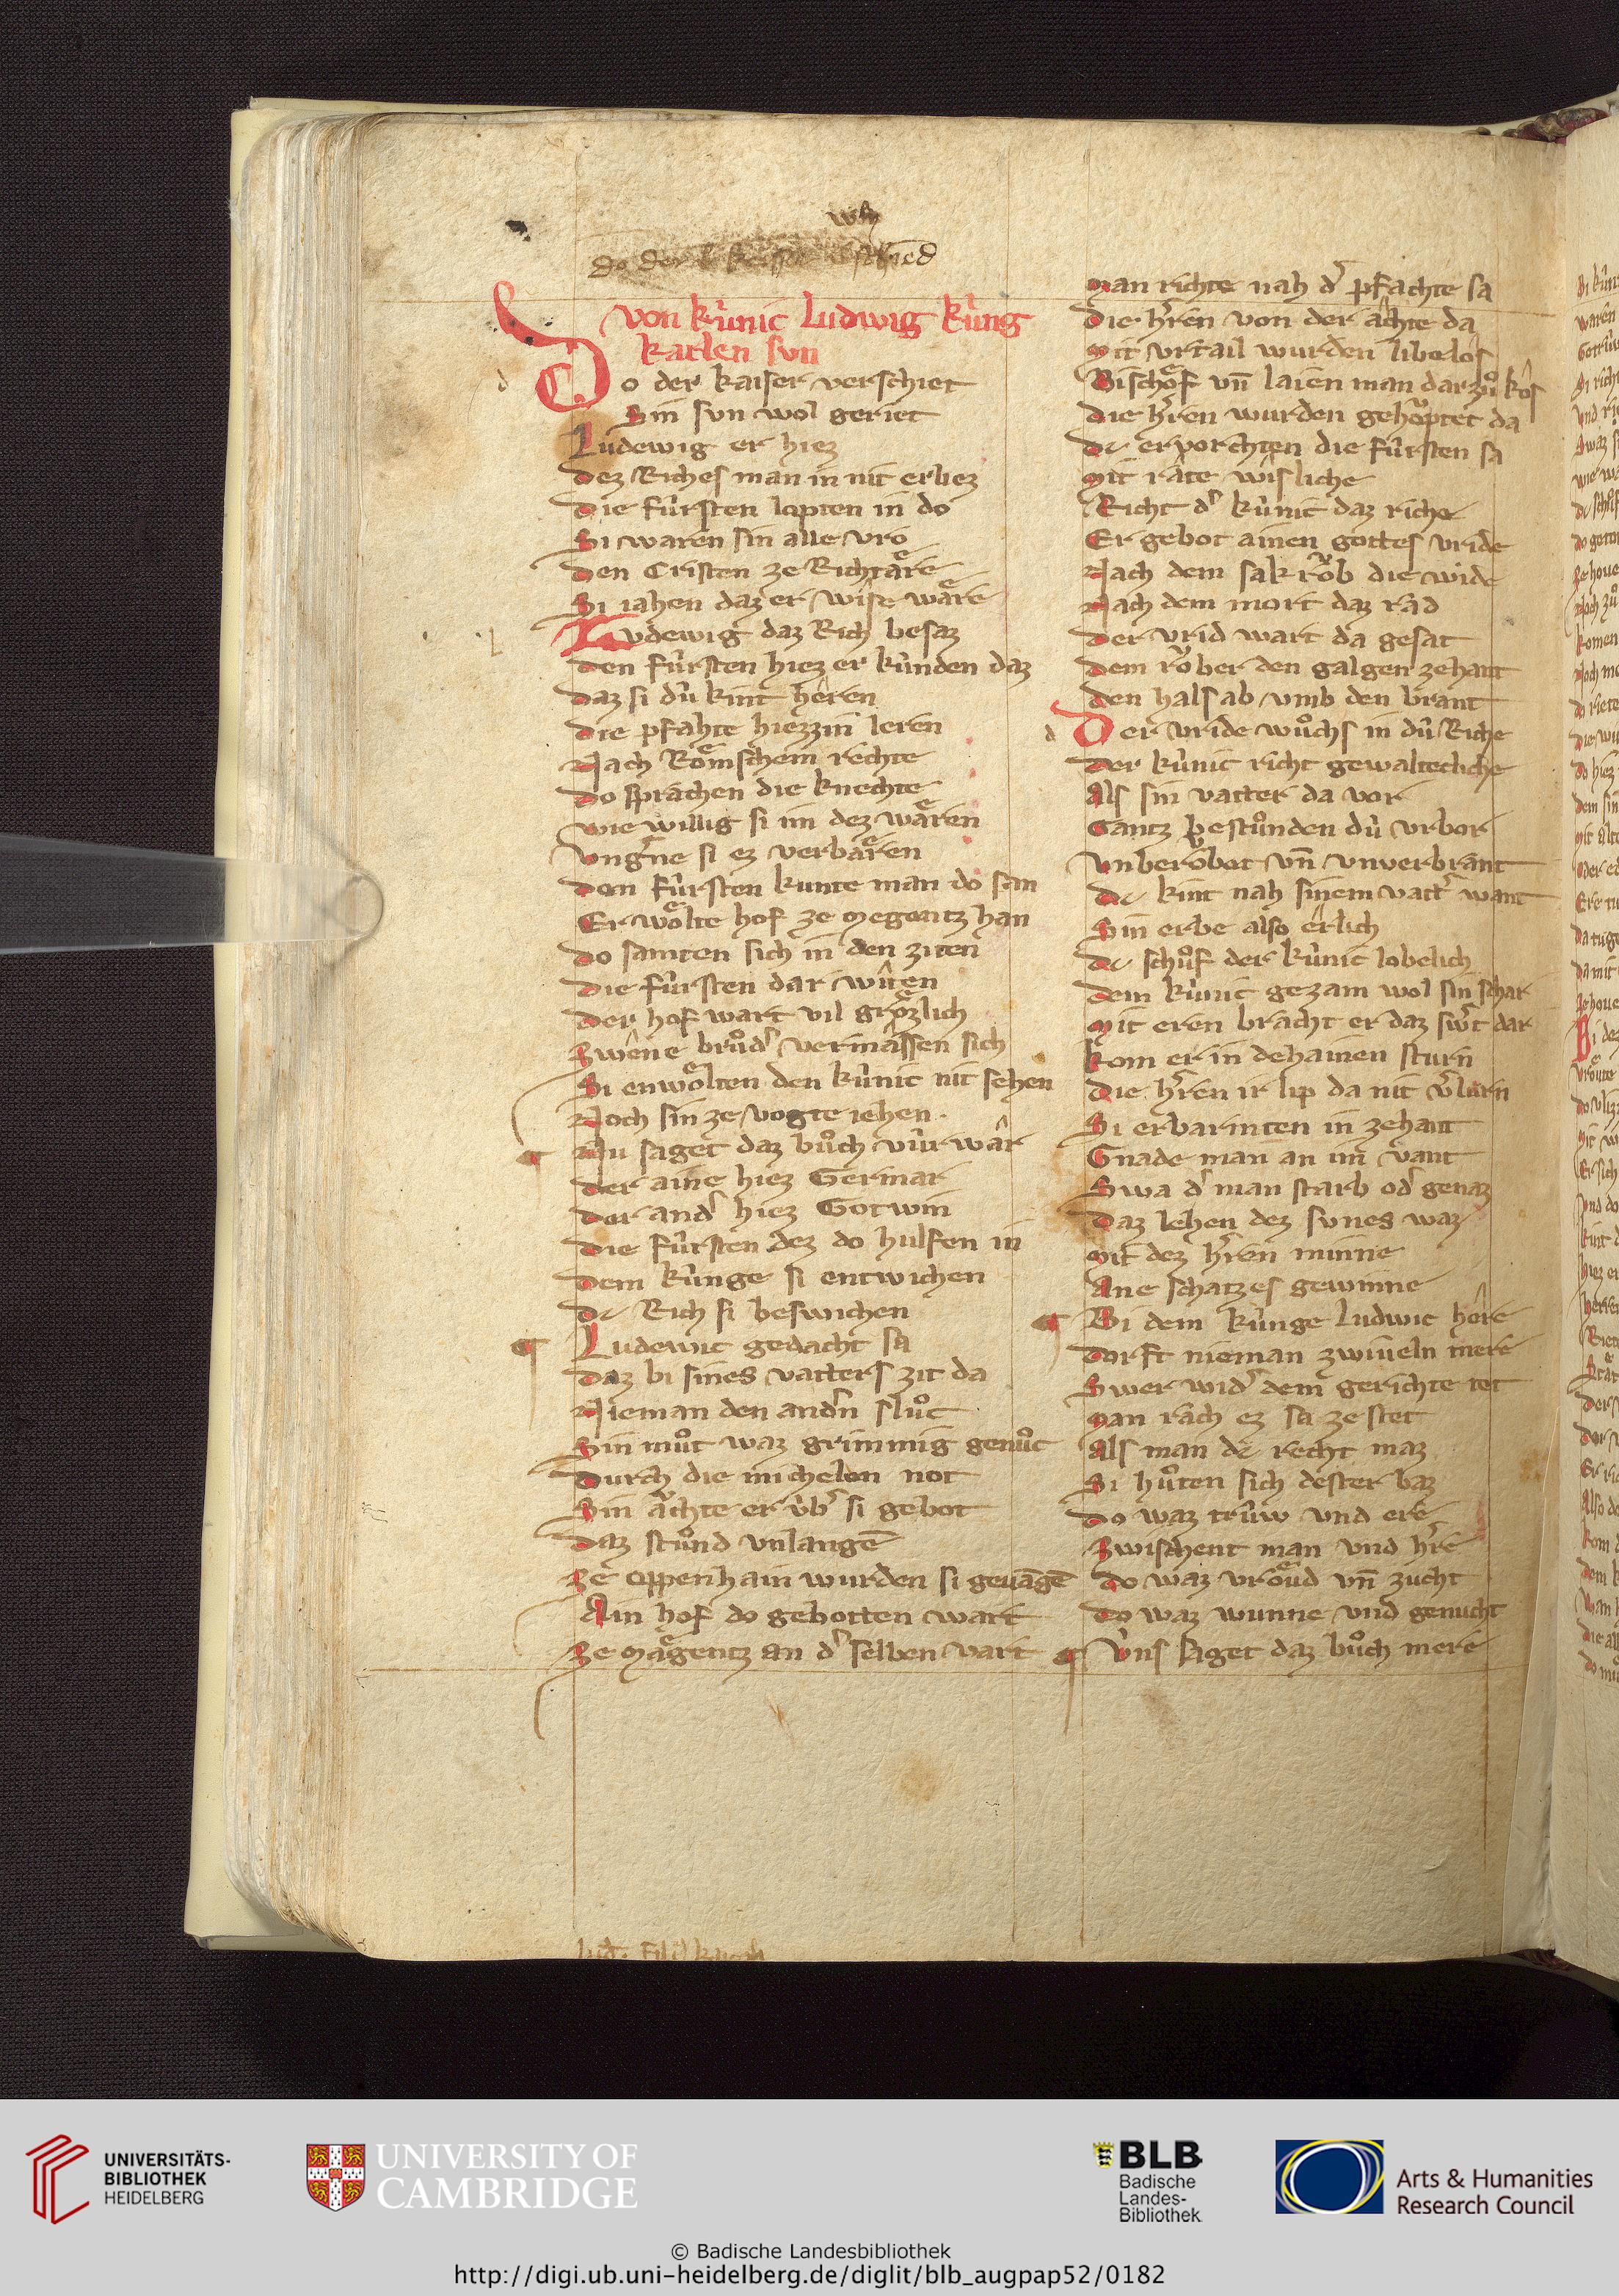 do der kaiser schied
Von kúnic Ludwig kúng
karlen sun
Do der kaiser verschiet
Sin sun wol geriet
Ludewig er hiez
dez Riches man in nit erliez
die fúrsten lopten in do
Si waren sin alle vro
den Cristen ze Richtaͤre
Si iahen daz er wise waͤre
Ludewig daz Rich besaz
den fúrsten hiez er kúnden daz
daz si dú kint hêren
die pfahte hiezzin leren
Nach Roͤmschem rechte
do sprachen die knechte
wie willig si im dez waͤren
vngˀne si ez verbaͤren
den fúrsten kunte man do san
Er woͤlte hof ze Megentz han
do samten sich in den ziten
die fúrsten dar witen
der hof wart vil groͤzlich
Zwêne bruͦdˀ vermâssen sich
Si enwoͤlten den kúnic nit sehen
Noch sin ze vogte iehen
Nu saget daz buͦch vúr wâr
der aine hiez Germar
der andˀ hiez Gotwin
die fúrsten dez do hulfen in
dem kúnge si entwichen
dc Rich si beswichen
Ludewic gedacht sa
daz bi sines vatters zit da
Nieman den andˀn sluͦc
Sin muͦt waz grimmig genuͦc
durch die michelen not
Sin aͤchte er úbˀ si gebot
daz stuͦnd vnlangē
Ze Oppenhain wurden si geuāgē
Ain hof do gebotten wart
Ze Maͤgentz an dˀ selben vart
man richte nah dˀ pfachte sa
die hˀren von der âchte da
Mit vrtail wurden libelôs
Bischof vn̄ laien man dar zuͦ kôs
die hˀren wurden gehoͮptet da
dc ervorchten die fúrsten sa
Mit râte wisliche
Richt dˀ kúnic daz riche
Er gebot ainen gottes vride
Nach dem sakroͮb die wide
Nach dem mort daz rad
der vrid wart da gesat
dem roͮber den galgen zehant
den hals ab vmb den brant
Der vride wuͦchs in dú Riche
der kúnic richt gewalteclîche
Als sin vatter da vor
Gantz bestuͦnden dú vrbor
vnberoͮbot vn̄ vnverbrant
dc kint nah sinem vattˀ want
Sin erbe also êrlich
dc schuͦf der kúnic lobelich
dem kúnic gezam wol sin schar
Mit eren bracht er daz swˀt dar
kom er in dehainen sturn
die hˀren ir lip da nit vˀlurn
Si erbarmten in zehant
Gnade man an im vant
Swa dˀ man starb odˀ genaz
daz lehen dez sunes waz
Mit dez hˀren minne
Ane schatzes gewinne
Bi dem kúnge Ludwic hêre
dorft nieman zwiueln mere
Swer widˀ dem gerichte tet
Man râch ez sa ze stet
Als man dc recht maz
Si huͦten sich dester baz
do waz trúw vnd ere
Zwischent man vnd hˀre
do waz vroͤud vn̄ zucht
do waz wunne vnd genucht
Úns saget daz buͦch mere
UNIVERSITÄTS-
BIBLIOTHEK
HEIDELBERG
UNIVERSITY OF
CAMBRIDGE
BLB
Badische
Landes-
Bibliothek
Arts & Humanities
Research Council
© Badische Landesbibliothek
http://digi.ub.uni-heidelberg.de/diglit/blb_augpap52/0182